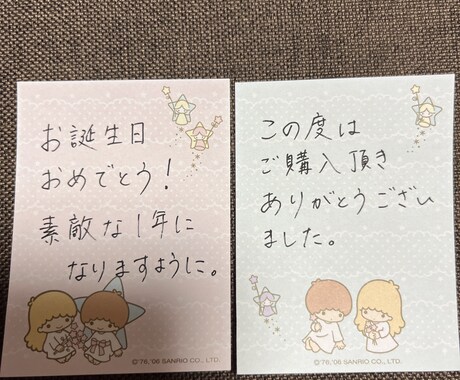 お誕生日
おめでとう!
素敵な1年に
なりますように。
©'76,'06 SANRIO CO., LTD.
この度は
ご購入頂き
ありがとうござい
ました。
©'76,'06 SANRIO CO., LTD.